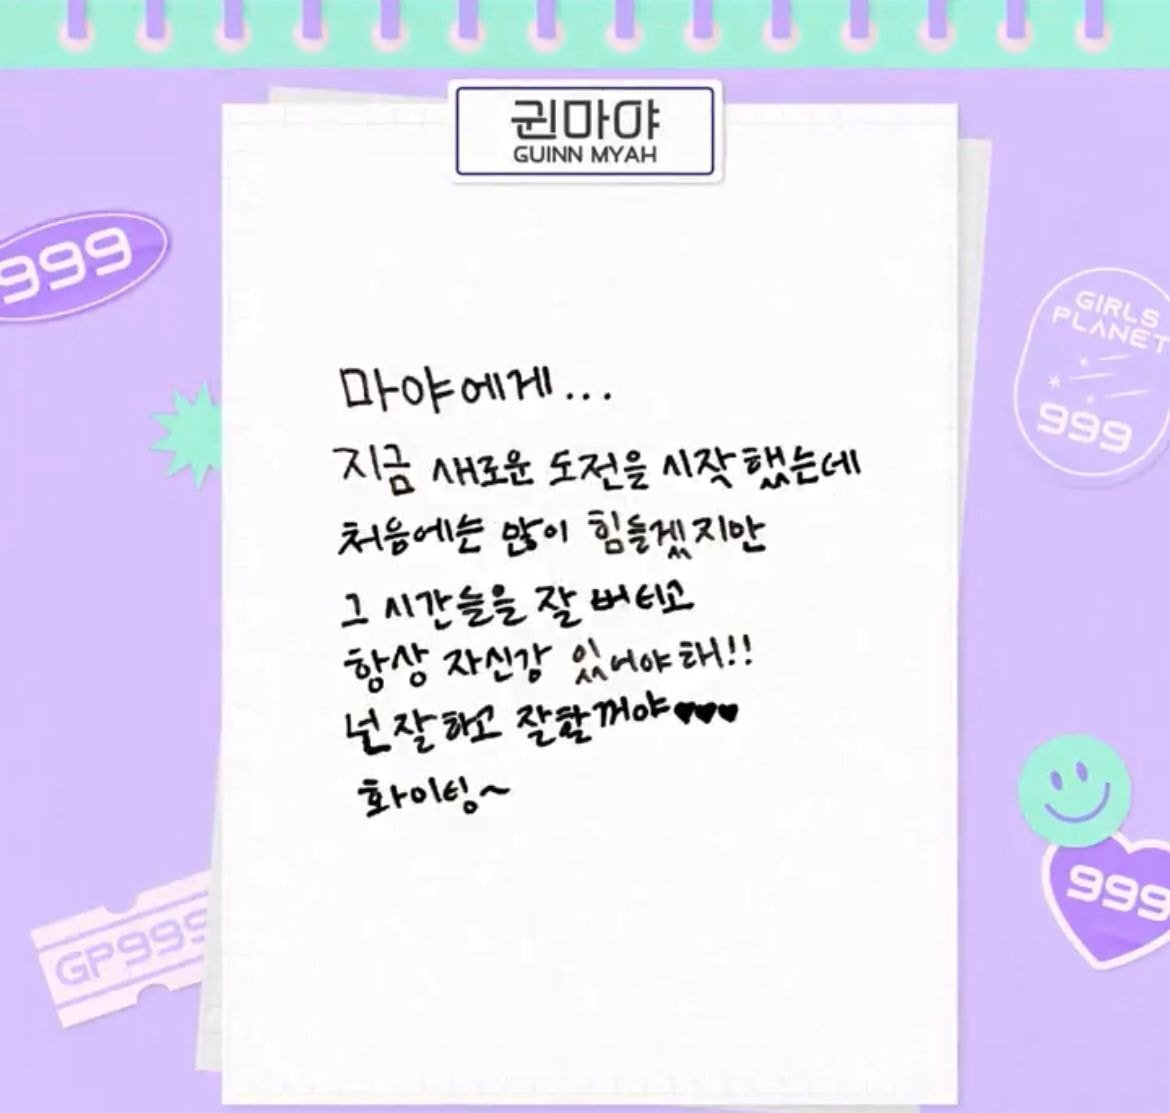 귄마야
GUINN MYAH
999
GIRLS
PLANET
999
마야에게...
지금 새로운 도전을 시작했는데
처음에는 많이 힘들겠지만
그 시간들을 잘 버티고
항상 자신감 있어야 해!!
넌 잘하고 잘할꺼야♥♥♥
화이팅~
999
GP999